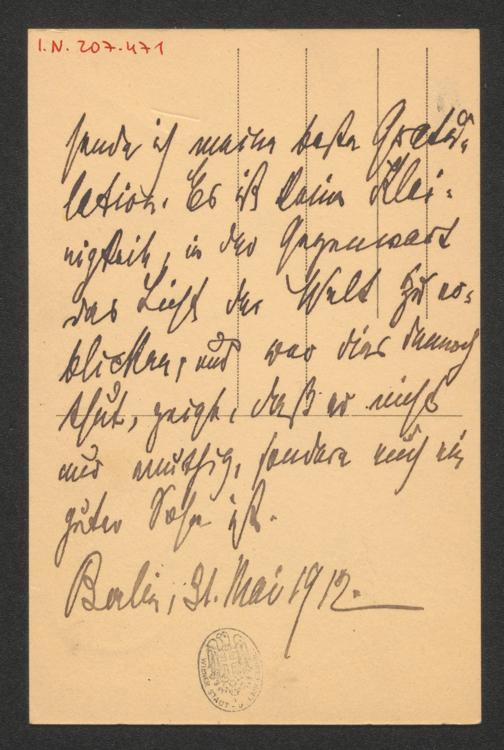 I.N. 207.471
sende ich meine beste Gratu-
lation. Es ist keine Klei-
nigkeit, in der Gegenwart
das Licht der Welt zu er-
blicken, und wer dies dennoch
thut, zeigt, daß er nicht
nur muthig, sondern auch ein
guter Sohn ist.
Berlin, 31. Mai 1912.
WIENER STADT-